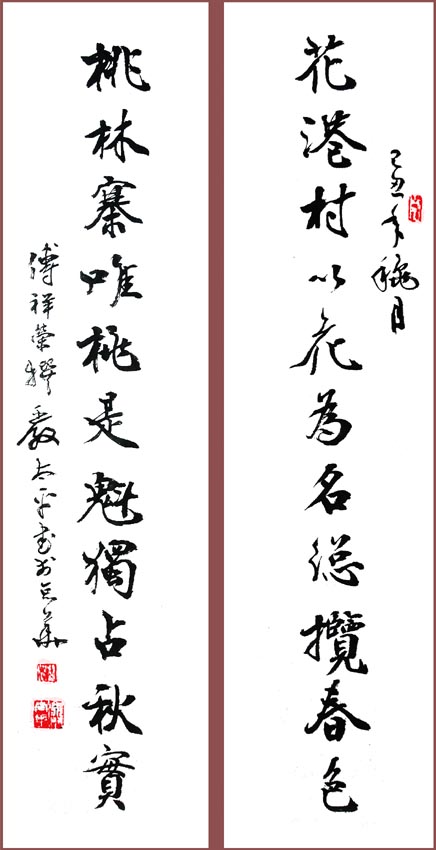 己丑年穐月
花港村以花為名總攬春色
桃林寨唯桃是魁獨占秋實
傅祥榮撰嚴太平書於京華